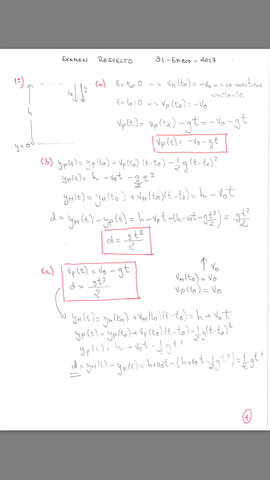 EXAMEN RESUELTO 31-Enero-2017
1º) (a) En t₀=0 → v_H(t₀) = -v₀ → se mantiene constante.
h v₀ g
En t₀=0 → v_P(t₀) = -v₀
v_P(t) = v_P(t₀) - gt = -v₀ - gt
v_P(t) = -v₀ - gt
y=0
(b) y_P(t) = y_P(t₀) + v_P(t₀)(t-t₀) - 1/2 g(t-t₀)²
y_P(t) = h - v₀t - 1/2 gt²
y_H(t) = y_H(t₀) + v_H(t₀)(t-t₀) = h - v₀t
d = y_H(t) - y_P(t) = h - v₀t - (h - v₀t - gt²/2) = gt²/2
d = gt²/2
(c) v_P(t) = v₀ - gt
d = gt²/2
v₀
v_H(t₀) = v₀
v_P(t₀) = v₀
y_H(t) = y_H(t₀) + v_H(t₀)(t-t₀) = h + v₀t
y_P(t) = y_P(t₀) + v_P(t₀)(t-t₀) - 1/2 g(t-t₀)²
y_P(t) = h + v₀t - 1/2 gt²
d = y_H(t) - y_P(t) = h + v₀t - (h + v₀t - 1/2 gt²) = 1/2 gt²
1